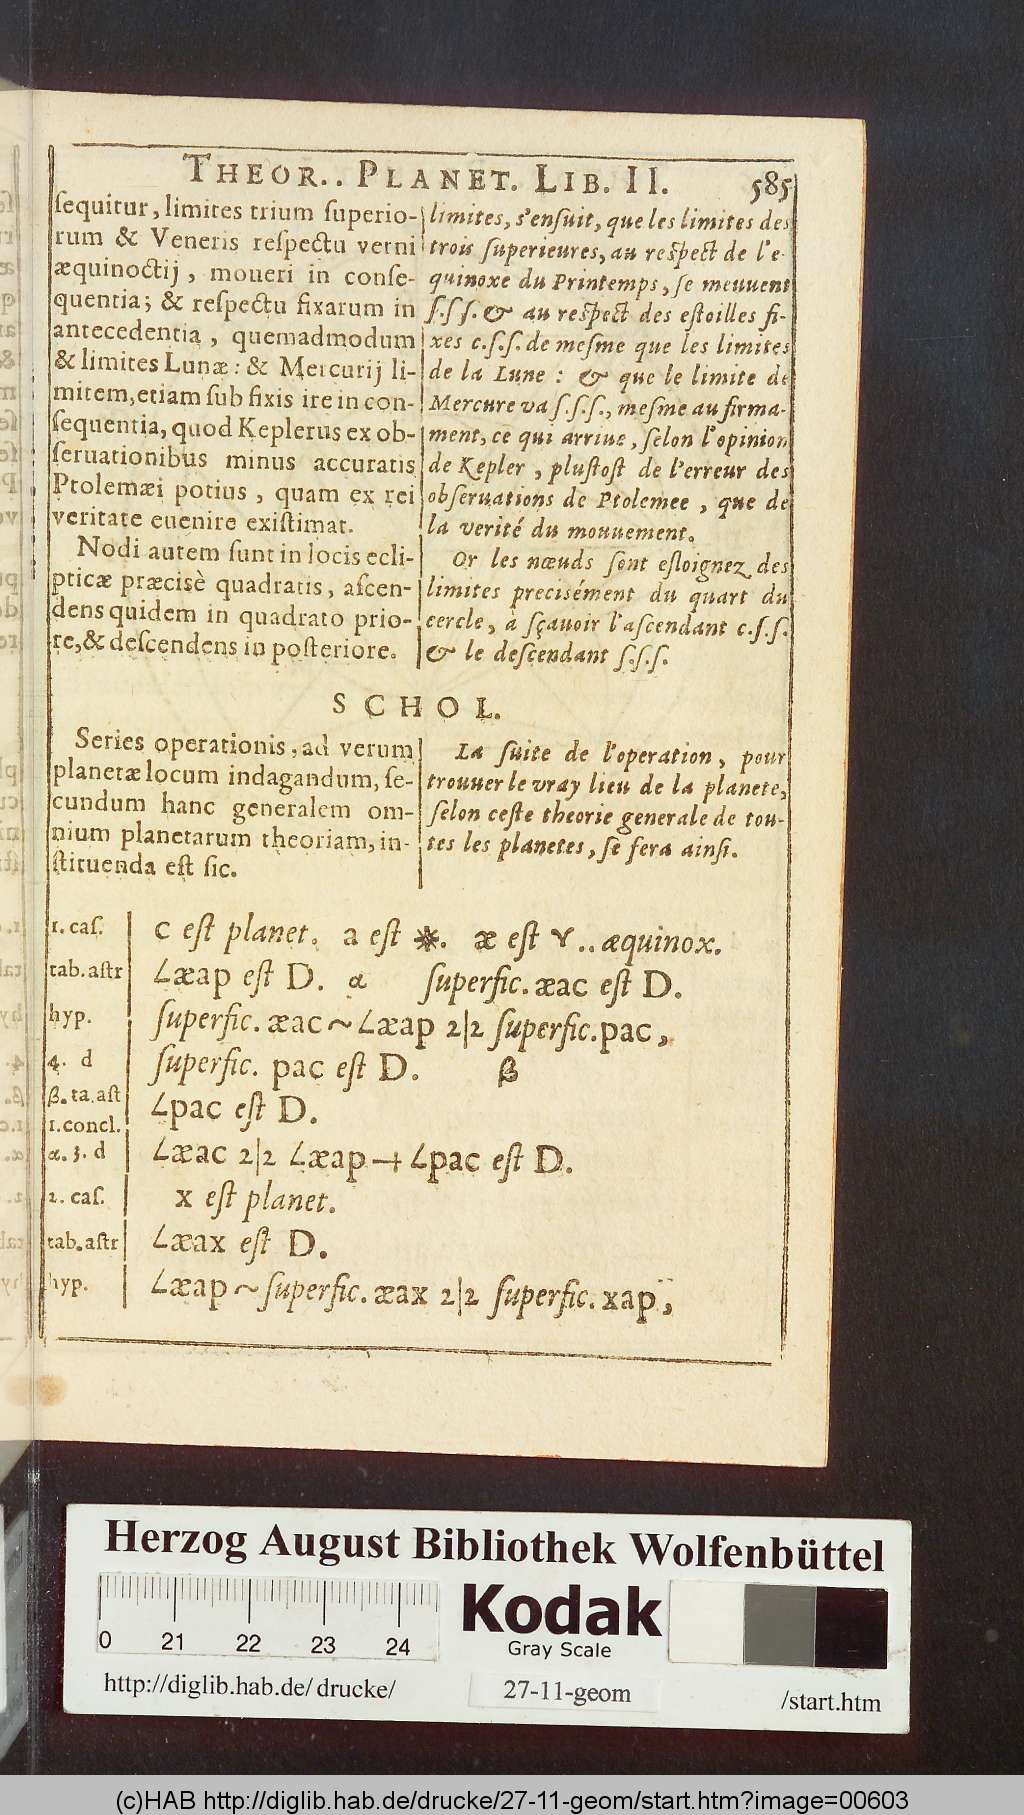 THEOR.. PLANET. LIB. II. 585
sequitur, limites trium superio-
rum & Veneris respectu verni
æquinoctij, moueri in conse-
quentia; & respectu fixarum in
antecedentia, quemadmodum
& limites Lunæ: & Mercurij li-
mitem, etiam sub fixis ire in con-
sequentia, quod Keplerus ex ob-
seruationibus minus accuratis
Ptolemæi potius, quam ex rei
veritate euenire existimat.
Nodi autem sunt in locis ecli-
pticæ præcisè quadratis, ascen-
dens quidem in quadrato prio-
re, & descendens in posteriore.
limites, s'ensuit, que les limites des
trois superieures, au respect de l'e-
quinoxe du Printemps, se meuuent
s.s.s. & au respect des estoilles fi-
xes c.s.s. de mesme que les limites
de la Lune: & que le limite de
Mercure va s.s.s., mesme au firma-
ment, ce qui arriue, selon l'opinion
de Kepler, plustost de l'erreur des
obseruations de Ptolemee, que de
la verité du mouuement.
Or les nœuds sont esloignez des
limites precisément du quart du
cercle, à sçauoir l'ascendant c.s.s.
& le descendant s.s.s.
SCHOL.
Series operationis, ad verum
planetæ locum indagandum, se-
cundum hanc generalem om-
nium planetarum theoriam, in-
stituenda est sic.
La suite de l'operation, pour
trouuer le vray lieu de la planete,
selon ceste theorie generale de tou-
tes les planetes, se fera ainsi.
1. cas. c est planet. a est ✵. æ est ♈.. æquinox.
tab. astr ∠æap est D. α superfic. æac est D.
hyp. superfic. æac ~ ∠æap 2|2 superfic. pac,
4. d superfic. pac est D. β
β. ta. ast
1. concl. ∠pac est D.
α. 3. d ∠æac 2|2 ∠æap + ∠pac est D.
2. cas. x est planet.
tab. astr ∠æax est D.
hyp. ∠æap ~ superfic. æax 2|2 superfic. xap,
Herzog August Bibliothek Wolfenbüttel
0 21 22 23 24
Kodak
Gray Scale
http://diglib.hab.de/drucke/ 27-11-geom /start.htm
(c)HAB http://diglib.hab.de/drucke/27-11-geom/start.htm?image=00603